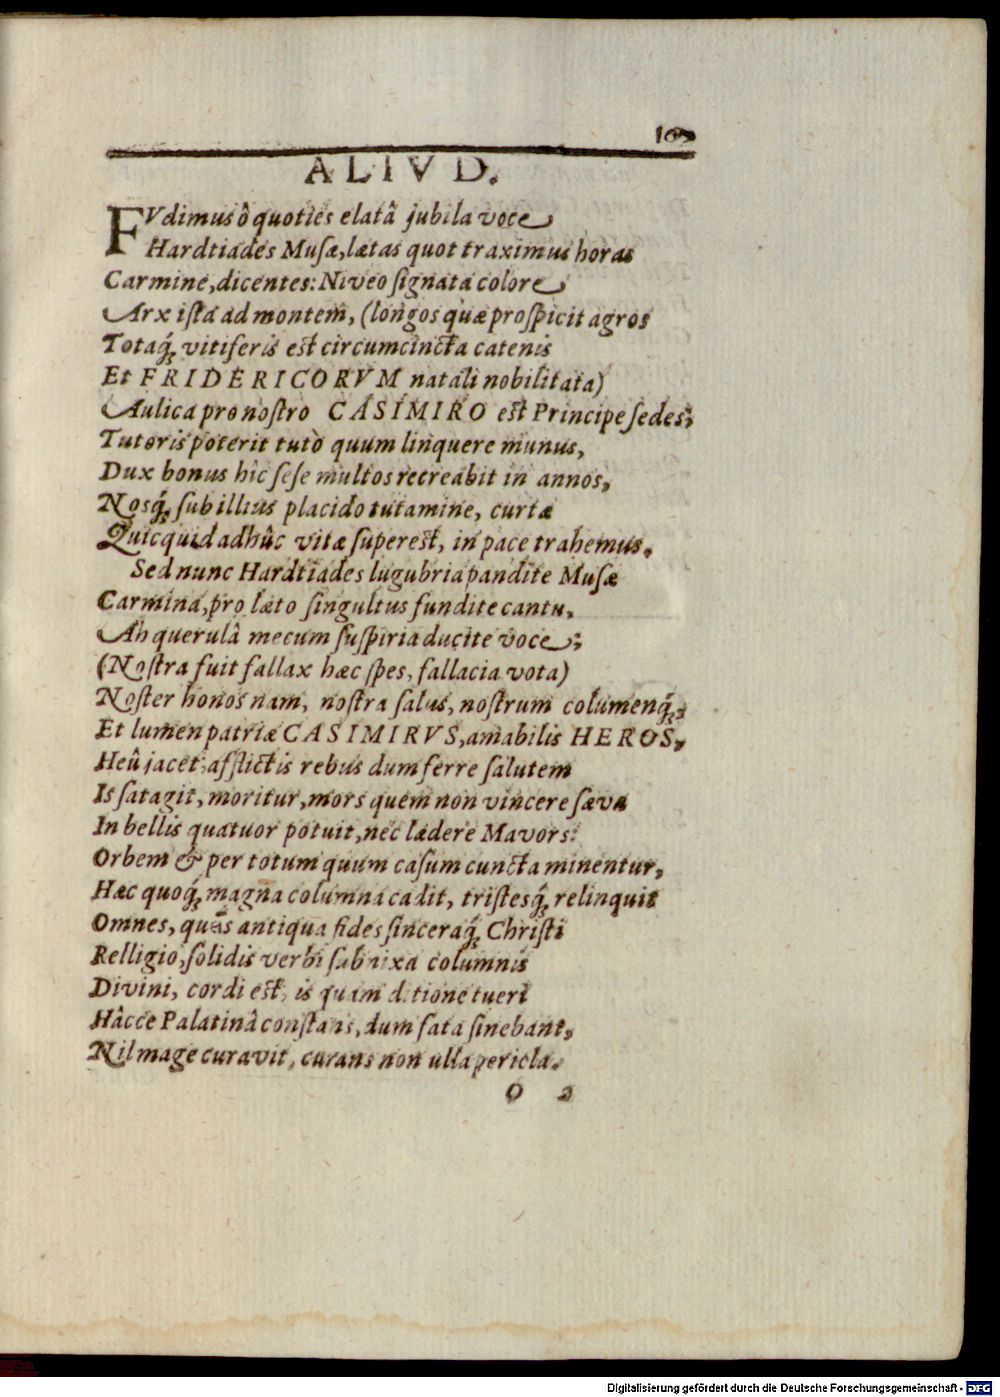 ALIVD.
FVdimus ô quoties elatâ jubila voce
Hardtiades Musæ, lætas quot traximus horas
Carmine, dicentes: Niveo signata colore
Arx ista ad montem, (longos quæ prospicit agros
Totaq́; vitiferis est circumcincta catenis
Et FRIDERICORVM natali nobilitata)
Aulica pro nostro CASIMIRO est Principe sedes;
Tutoris poterit tutò quum linquere munus,
Dux bonus hîc sese multos recreabit in annos,
Nosq́; sub illius placido tutamine, curtæ
Quicquid adhûc vitæ superest, in pace trahemus.
Sed nunc Hardtiades lugubria pandite Musæ
Carmina, pro læto singultus fundite cantu,
Ah querulâ mecum suspiria ducite voce;
(Nostra fuit fallax hæc spes, fallacia vota)
Noster honos nam, nostra salus, nostrum columenq́;,
Et lumen patriæ CASIMIRVS, amabilis HEROS,
Heû jacet, afflictis rebus dum ferre salutem
Is satagit, moritur, mors quem non vincere sæva
In bellis quatuor potuit, nec lædere Mavors:
Orbem & per totum quum casum cuncta minentur,
Hæc quoq́; magna columna cadit, tristesq́; relinquit
Omnes, quêis antiqua fides sinceraq́; Christi
Relligio, solidis verbi subnixa columnis
Divini, cordi est, is quam ditione tueri
Hâcce Palatinâ constans, dum fata sinebant,
Nil mage curavit, curans non ulla pericla.
O 2
Digitalisierung gefördert durch die Deutsche Forschungsgemeinschaft - DFG